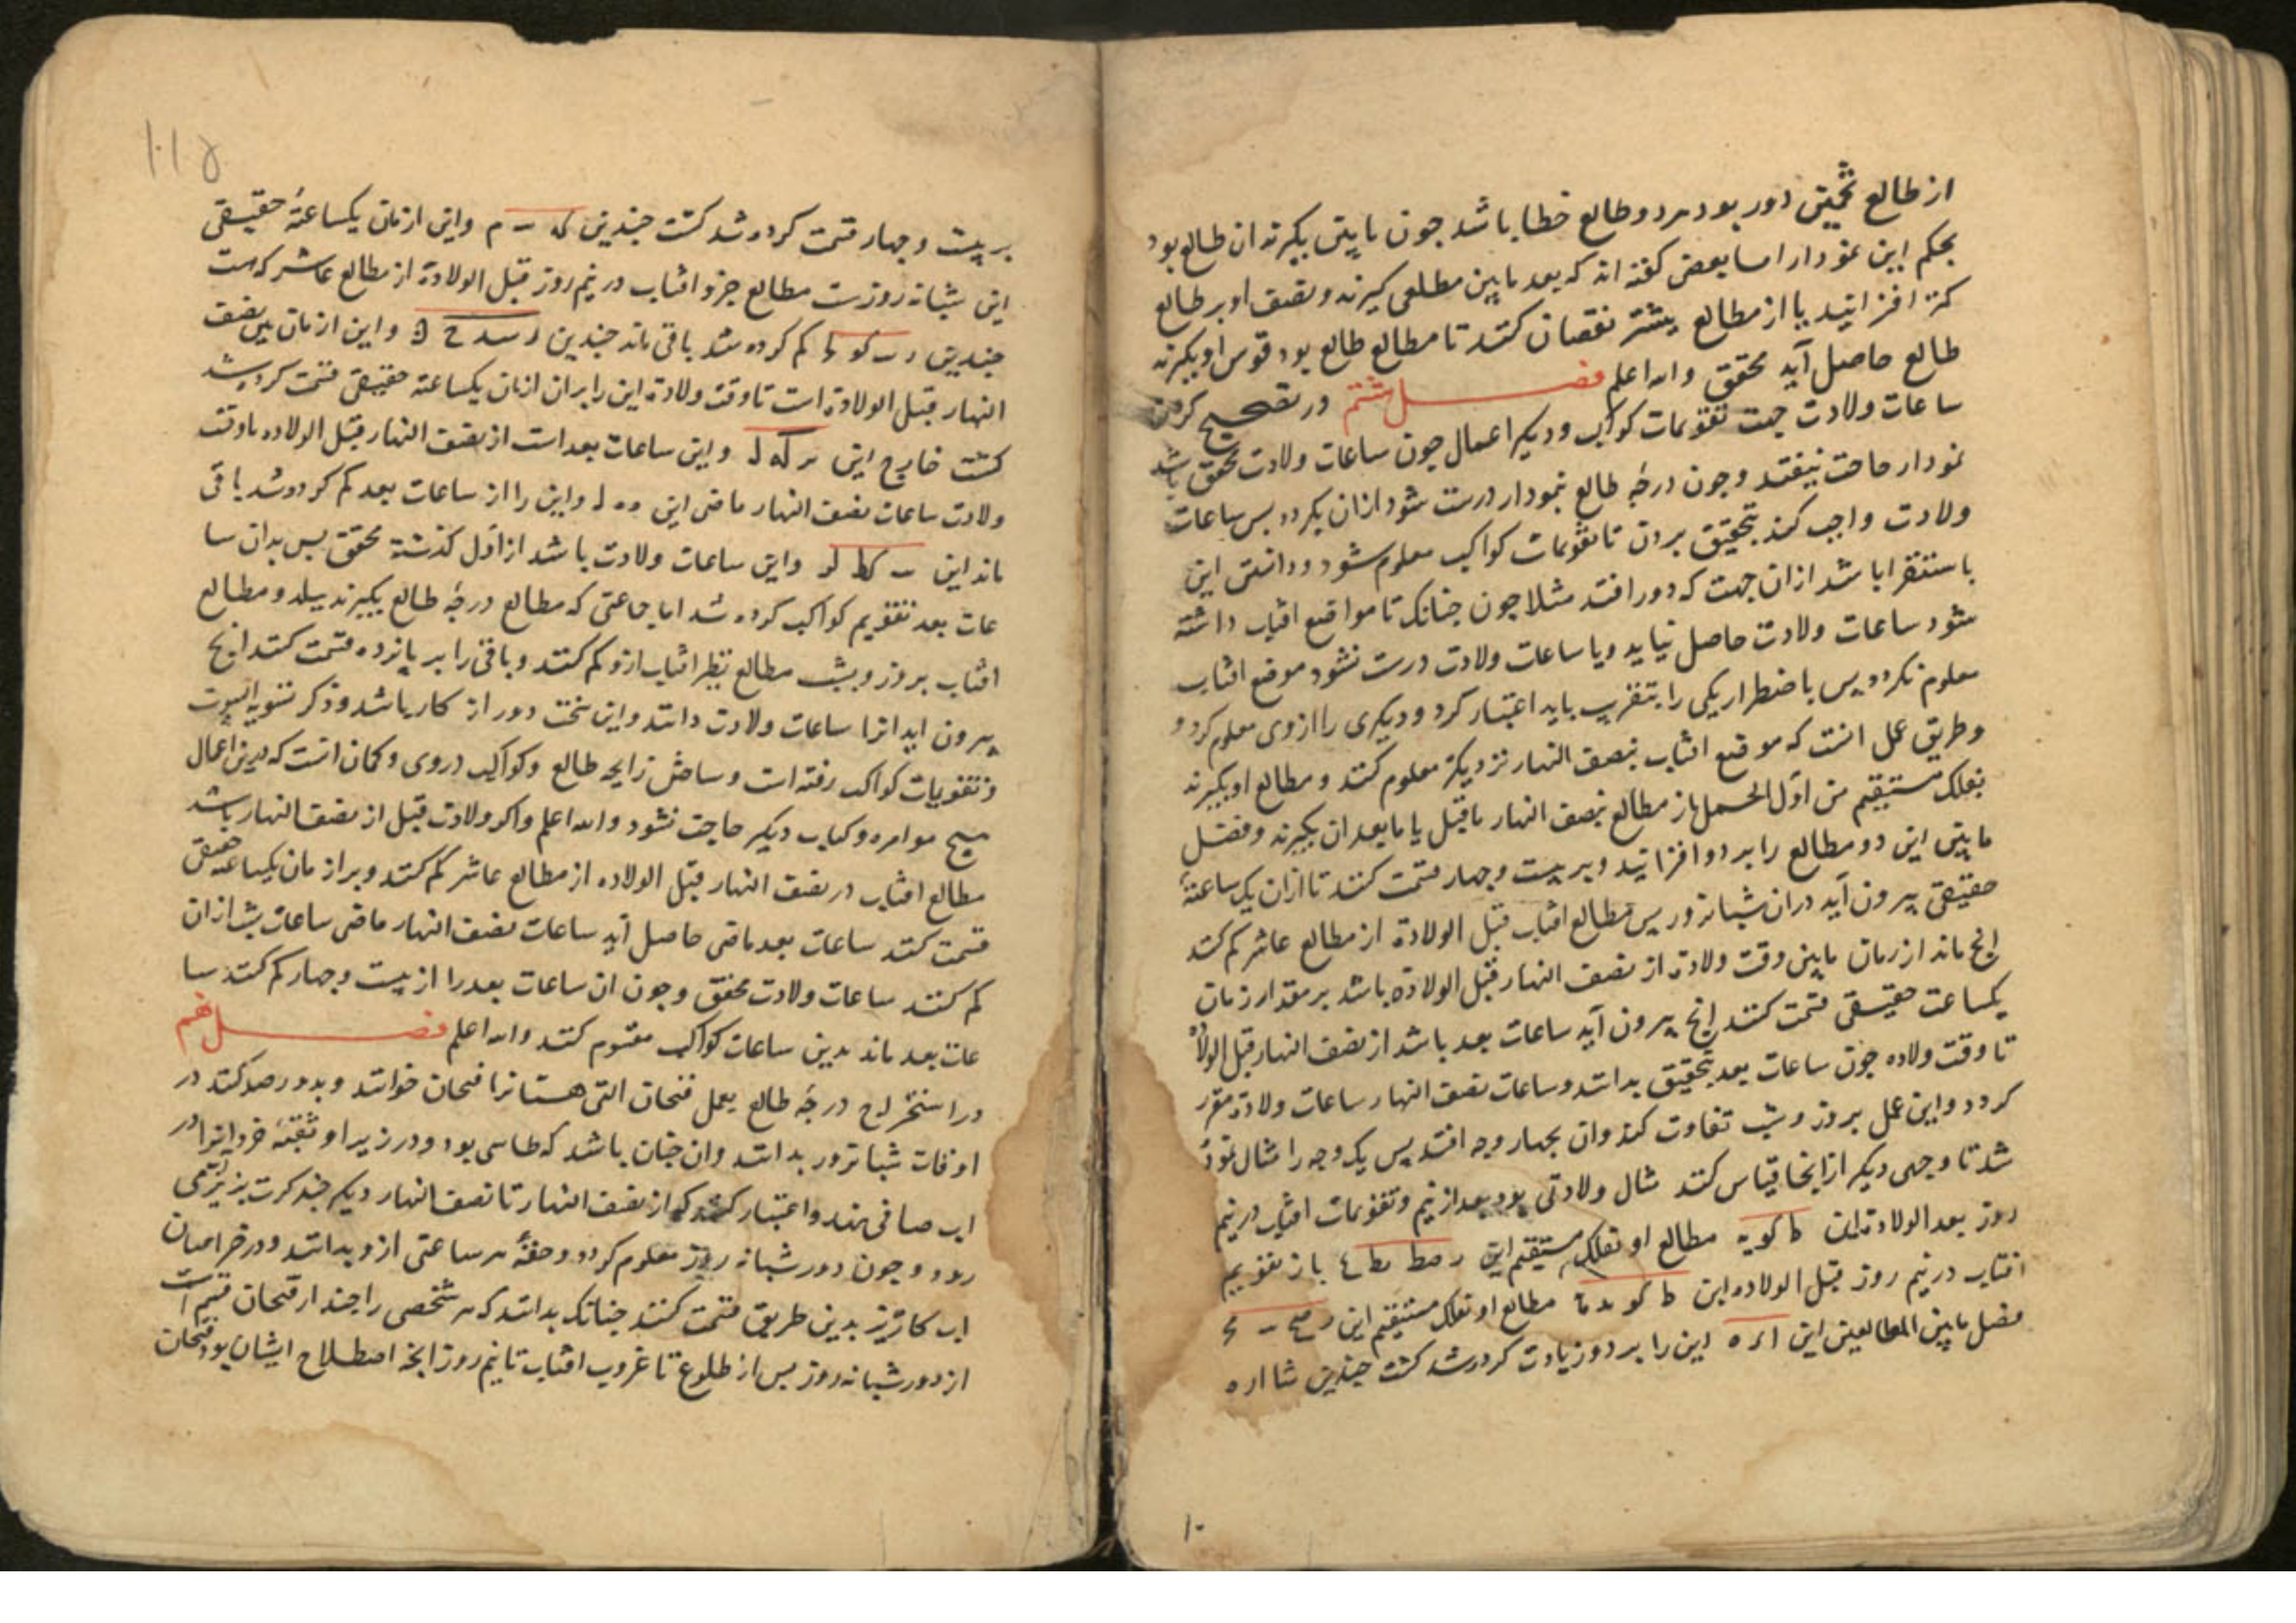 از طالع تخمین دور بود هر دو طالع خطا باشد جون مابینی بکیرند ان طالع بود
بحکم این نمودار اما بعض کفته اند که بعد مابین مطلعی کیرند و نصف او بر طالع
کمتر افزایند یا از مطالع بیشتر نقصان کنند تا مطالع طالع بود قوس او بکیرند
طالع حاصل آید محقق والله اعلم فصل هشتم در تصحیح کردن
ساعات ولادت جهت تقویمات کواکب و دیکر اعمال جون ساعات ولادت محقق باشد
نمودار حاجت نیفتد و جون درجهٔ طالع بنمودار درست شود ازان بکردد بس ساعات
ولادت واجب کند بتحقیق بردن تا تقویمات کواکب معلوم شود و دانستن این
باستقرا باشد ازان جهت که دور افتد مثلا جون جنانک تا مواقع افتاب داشته
شود ساعات ولادت حاصل نیاید و یا ساعات ولادت درست نشود موضع افتاب
معلوم نکردد پس باضطرار یکی را بتقریب باید اعتبار کرد و دیکری را ازوی معلوم کرد و
وطریق عمل انست که موضع افتاب بنصف النهار نزدیکتر معلوم کنند و مطالع او بکیرند
بفلک مستقیم من اول الحمل باز مطالع نصف النهار ماقبل یا مابعد ان بکیرند و فضل
مابین این دو مطالع را بر دور افزایند و بر بیست و جهار قسمت کنند تا ازان یک ساعتهٔ
حقیقی بیرون آید دران شبانروز پس مطالع افتاب قبل الولادة از مطالع عاشر کم کنند
انچ ماند از زمان مابین وقت ولادة از نصف النهار قبل الولادة باشد بر مقدار زمان
یکساعت حقیقی قسمت کنند انچ بیرون آید ساعات بعد باشد از نصف النهار قبل الولاده
تا وقت ولاده جون ساعات بعد بتحقیق بدانند و ساعات نصف النهار ساعات ولادة مقرر
کردد و این عمل بروز و شب تفاوت کند وان بجهار وجه افتد پس یک وجه را مثال نموده
شد تا وجهی دیکر ازانجا قیاس کنند مثال ولادتی بود بعد از نیم و تقویمات افتاب در نیم
روز بعد الولادة این ط کو یه مطالع او بفلک مستقیم این باز تقویم
افتاب در نیم روز قبل الولاده این ط کو مطالع او بفلک مستقیم این
فضل مابین المطالعین این این را بر دور زیادت کرده شد کشت جندین
بر بیست و جهار قسمت کرده شد کشت جندین و این ازمان یکساعتهٔ حقیقی
این شبانه روزست مطالع جزو افتاب در نیم روز قبل الولادة از مطالع عاشر که هست
جندین کم کرده شد باقی ماند جندین و این ازمان بین نصف
النهار قبل الولادة است تا وقت ولادة این را بران ازمان یکساعته حقیقی قسمت کرده شد
کشت خارج این و این ساعات بعد است از نصف النهار قبل الولاده تا وقت
ولادت ساعات نصف النهار ماضی این و این را از ساعات بعد کم کرده شد باقی
ماند این و این ساعات ولادت باشد از اول کذشته محقق بس بدان سا
عات بعد تقویم کواکب کرده شد اما جماعتی که مطالع درجهٔ طالع بکیرند ببلد و مطالع
افتاب بروز و بشب مطالع نظیر افتاب ازو کم کنند و باقی را بر پانزده قسمت کنند انچ
بیرون اید انرا ساعات ولادت دانند و این سخت دور از کار باشد و ذکر تسویه البیوت
و تقویمات کواکب رفته است و ساختن زایجه طالع و کواکب دروی و کمان انست که درین اعمال
هیچ موامره و کتاب دیکر حاجت نشود والله اعلم و اکر ولادت قبل از نصف النهار باشد
مطالع افتاب در نصف النهار قبل الولاده از مطالع عاشر کم کنند و بر ازمان یکساعته حقیقی
قسمت کنند ساعات بعد ماضی حاصل آید ساعات نصف النهار ماضی ساعات شب ازان
کم کنند ساعات ولادت محقق و جون ان ساعات بعد را از بیست و جهار کم کنند سا
عات بعد ماند بدین ساعات کواکب مقوم کنند والله اعلم فصل نهم
در استخراج درجهٔ طالع بعمل فنجان التی هست انرا فنجان خوانند و بدو رصد کنند در
اوقات شبانروز بدانند وان جنان باشد که طاسی بود و در زیر او ثقبهٔ خرد انرا در
اب صافی نهند و اعتبار کنند که از نصف النهار تا نصف النهار دیکر جند کرت بزیر می
رود و جون دور شبانه روز معلوم کردد و حصهٔ هر ساعتی ازو بدانند و در خراسان
اب کاریز بدین طریق قسمت کنند جنانک بدانند که هر شخصی را جند از فنجان قسمت
از دور شبانه روز بس از طلوع تا غروب افتاب تا نیم روز انجه اصطلاح ایشان بود فنجان